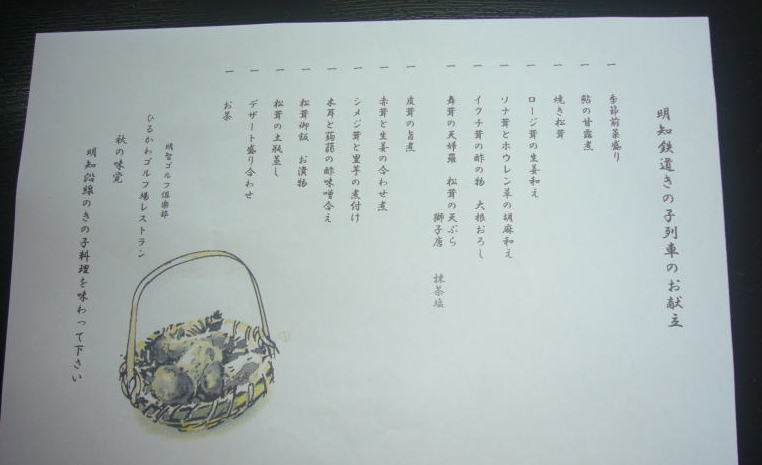 明知鉄道きの子列車のお献立
一 季節前菜盛り
一 鮎の甘露煮
一 焼き松茸
一 ロージ茸の生姜和え
一 ソナ茸とホウレン草の胡麻和え
一 イクチ茸の酢の物 大根おろし
一 舞茸の天婦羅 松茸の天ぷら
獅子唐 抹茶塩
一 皮茸の旨煮
一 赤茸と生姜の合わせ煮
一 シメジ茸と里芋の煮付け
一 木耳と蒟蒻の酢味噌合え
一 松茸御飯 お漬物
一 松茸の土瓶蒸し
一 デザート盛り合わせ
一 お茶
明智ゴルフ倶楽部
ひるかわゴルフ場レストラン
秋の味覚
明知沿線のきの子料理を味わって下さい